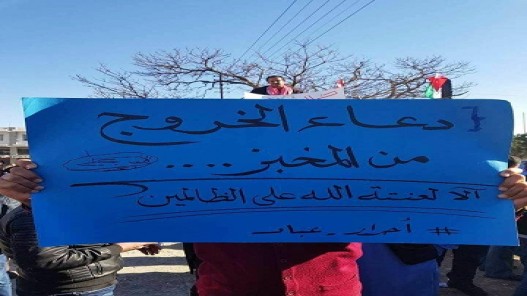 { دعاء الخروج
من المخبز ....
الا لعنتة الله على الظالمين
# أحرار_عيار